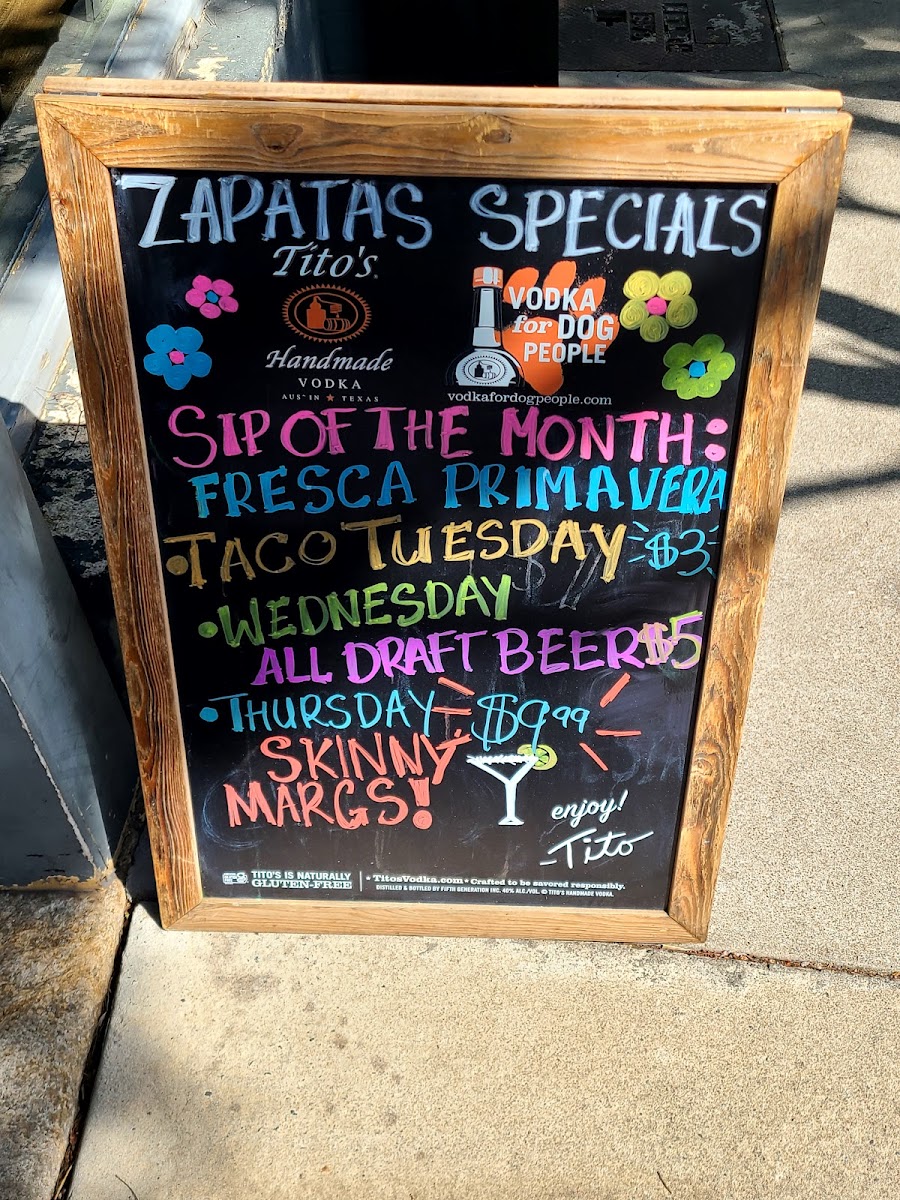 ZAPATAS SPECIALS
Tito's
Handmade
VODKA
AUSTIN ★ TEXAS
VODKA
for DOG
PEOPLE
vodkafordogpeople.com
SIP OF THE MONTH:
FRESCA PRIMAVERA
• TACO TUESDAY $3
• WEDNESDAY
ALL DRAFT BEER $5
• THURSDAY $9.99
SKINNY
MARGS!
enjoy!
-Tito
TITO'S IS NATURALLY
GLUTEN-FREE
• TitosVodka.com • Crafted to be savored responsibly.
DISTILLED & BOTTLED BY FIFTH GENERATION INC. 40% ALC./VOL. © TITO'S HANDMADE VODKA.